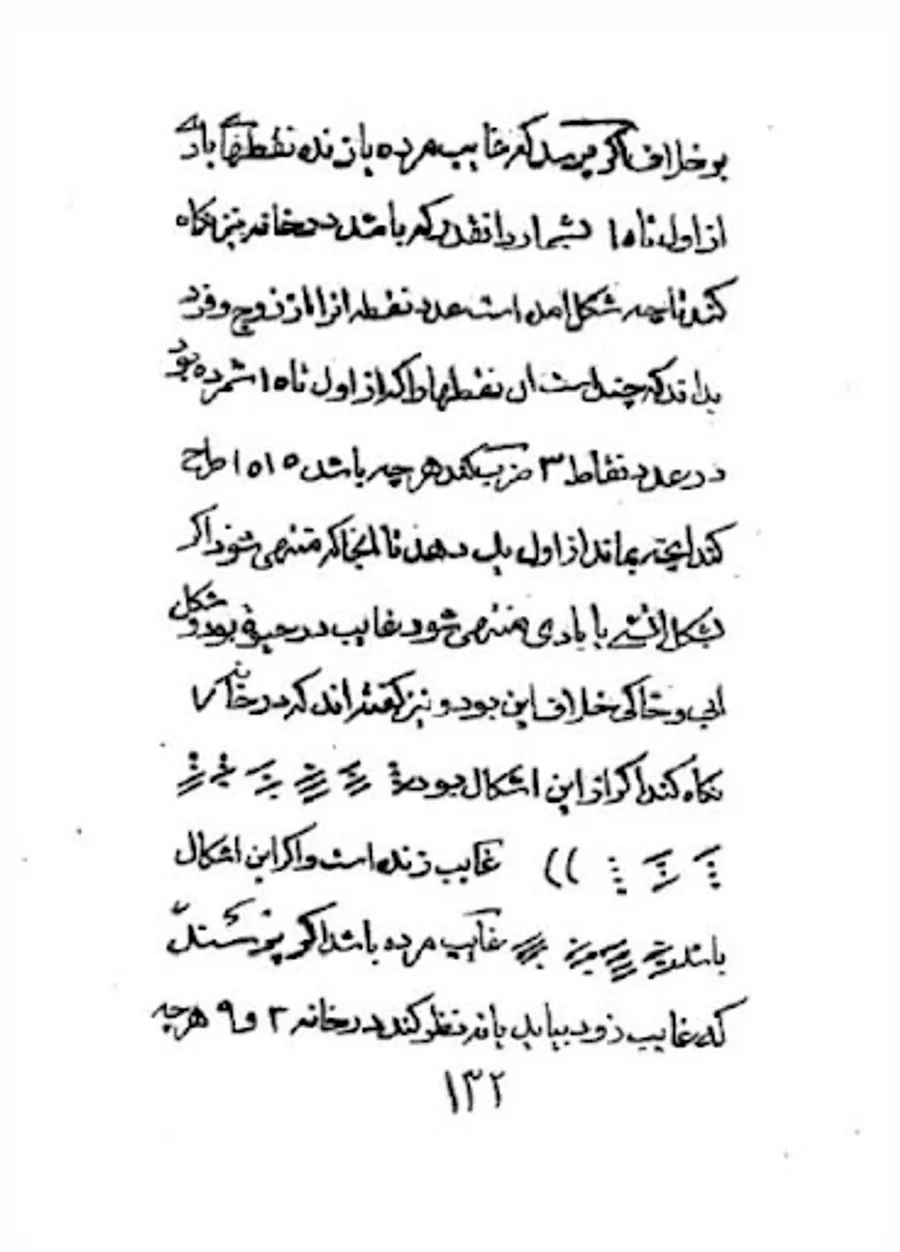 بر خلاف اگر پرسد که غایب مرده یا زنده نقطهای بادی
از اول تا ۱۵ بشمارد انقدر که باشد در خانه نیز نگاه
کند تا چه شکل امده است عدد نقطه انرا از زوج و فرد
بداند که چند است ان نقطها را که از اول تا ۱۵ شمرده بود
در عدد نقاط ۳ ضرب کند هر چه باشد ۱۵ ۱۵ طرح
کند انچه بماند از اول بدهد تا انجا که منتهی شود اگر
بشکل اتشی یا بادی منتهی شود غایب در حیوة بود و شکل
ابی و خاکی خلاف این بود و نیز گفته اند که در خانه ۷
نگاه کند اگر از این اشکال بود
غایب زنده است و اگر این اشکال
باشد غایب مرده باشد اگر پرسند
که غایب زود بیاید یا نه نظر کند در خانه ۲ و ۹ هر چه
۱۳۲